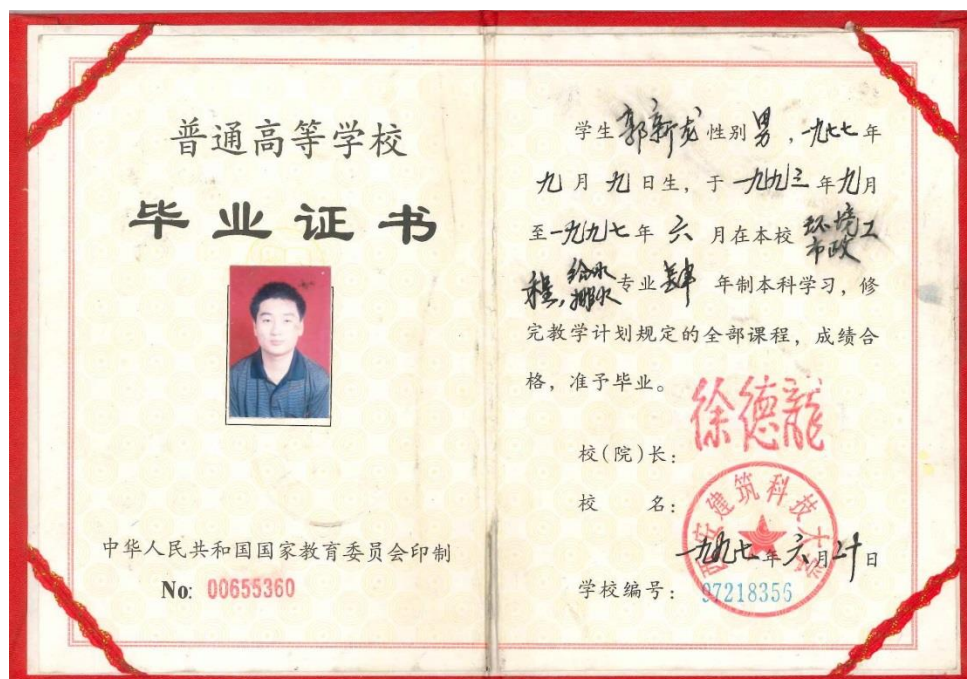 普通高等学校
毕业证书
中华人民共和国国家教育委员会印制
No: 00655360
学生郭新龙性别男,一九七七年
九月九日生,于一九九三年九月
至一九九七年六月在本校环境工
市政
程,给水排水专业肆年制本科学习,修
完教学计划规定的全部课程,成绩合
格,准予毕业。
徐德龍
校(院)长:
校名:
西安建筑科技大学
一九九七年六月二十日
学校编号:97218356